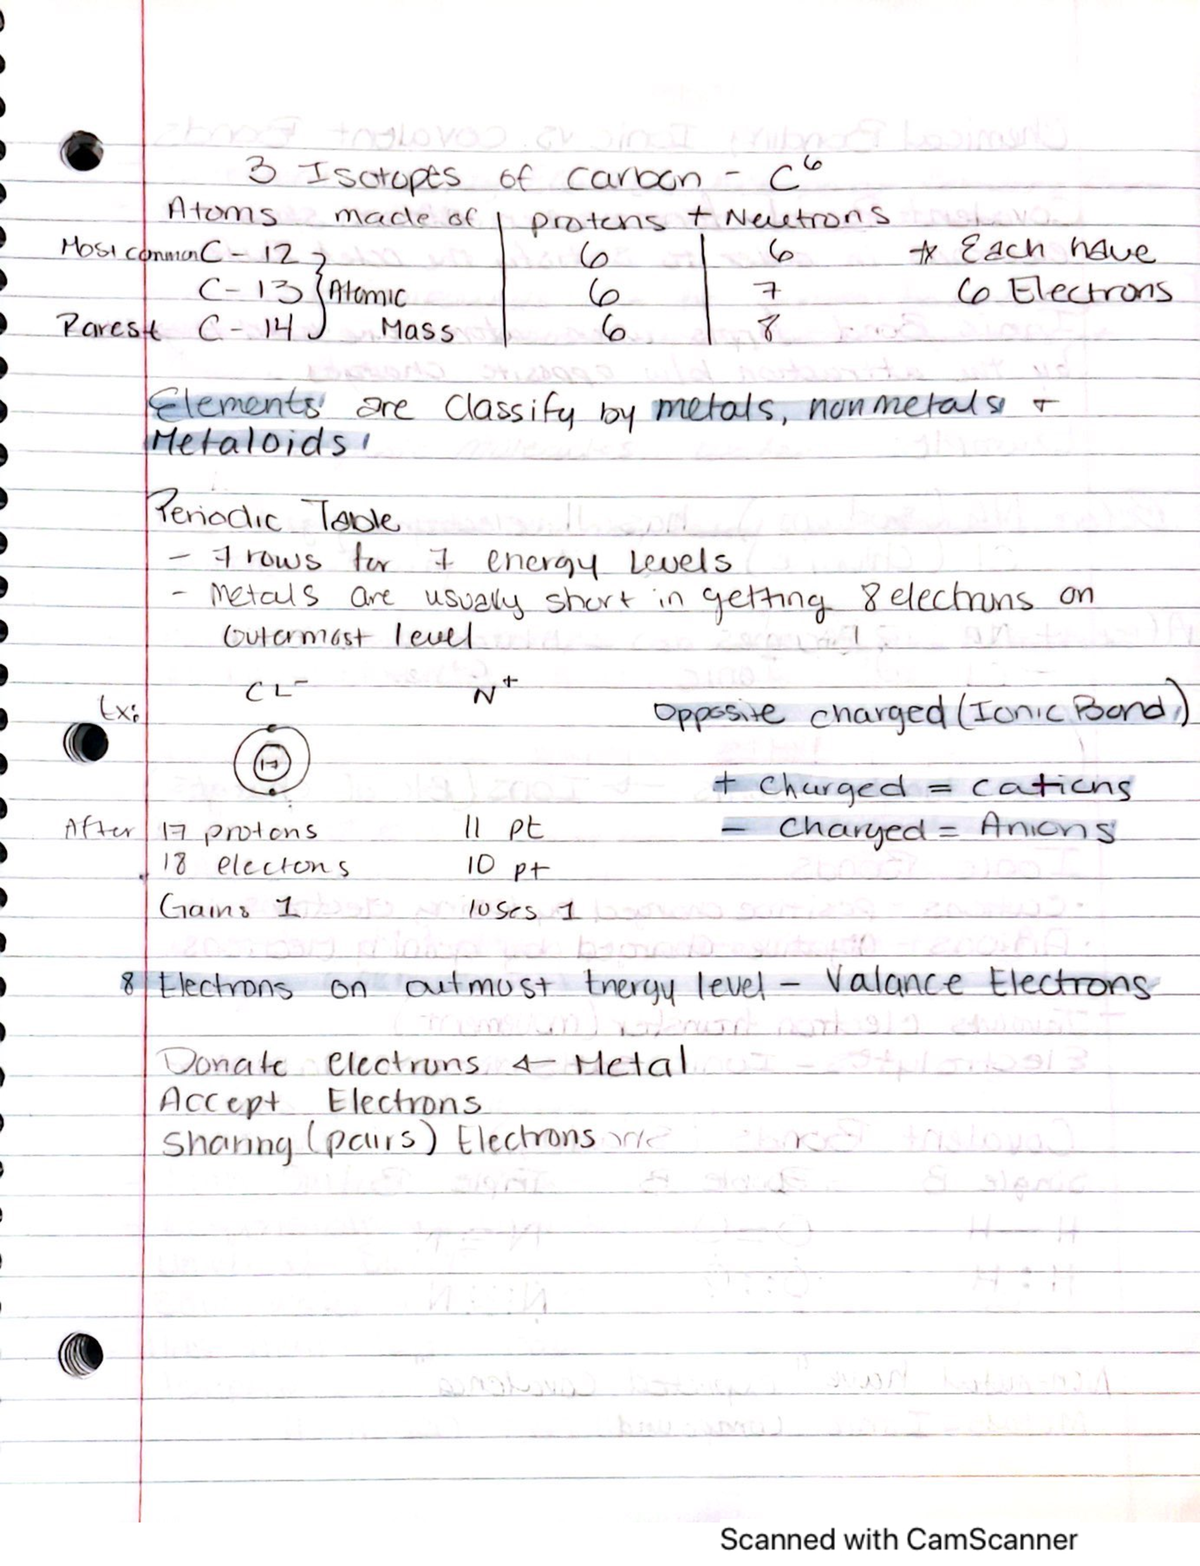 3 Isotopes of carbon - C⁶
Atoms made of | protons + Neutrons
Most common C-12 } 6 | 6 * Each have
C-13 } Atomic 6 | 7 6 Electrons
Rarest C-14 } Mass 6 | 8
Elements are Classify by metals, nonmetals +
Metaloids
Periodic Table
- 7 rows for 7 energy Levels
- Metals are usually short in getting 8 electrons on
outermost level
CL⁻ N⁺
Ex: Opposite charged (Ionic Bond)
17
+ Charged = cations
After 17 protons 11 pt - Charged = Anions
18 electons 10 pt
Gains 1 loses 1
8 Electrons on outmost Energy level - Valance Electrons
Donate Electrons ← Metal
Accept Electrons
Sharing (pairs) Electrons
Scanned with CamScanner